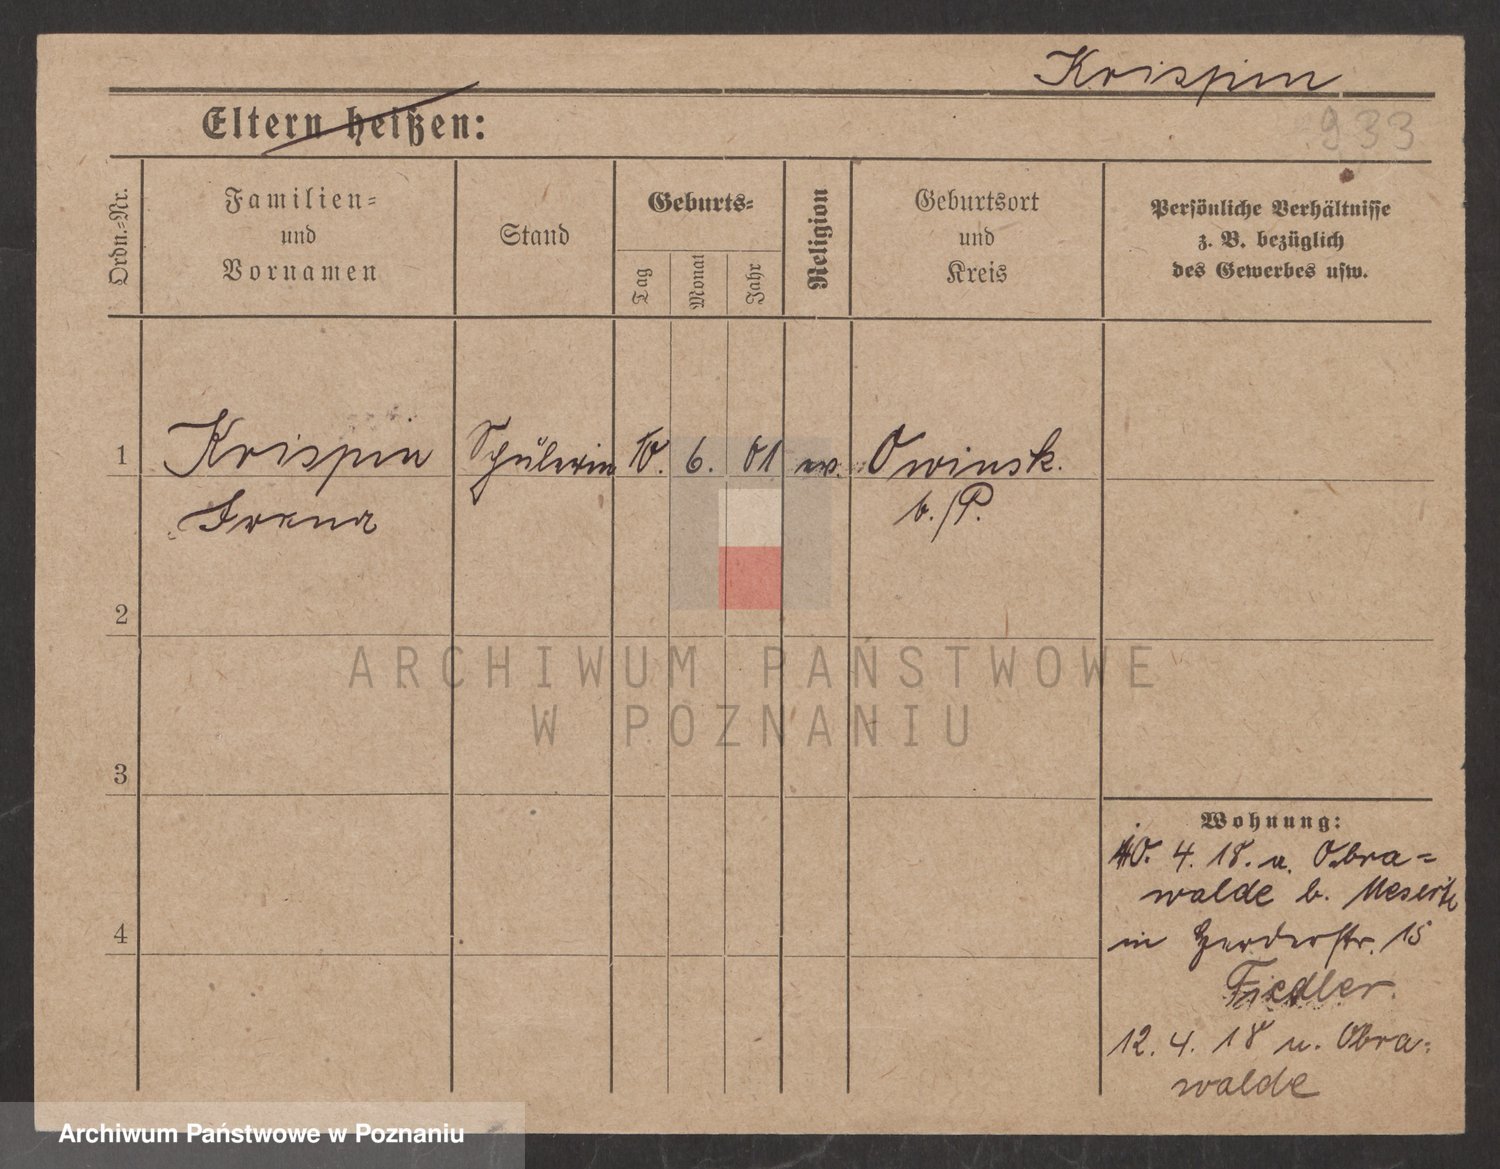 Krispin
933
Eltern heißen:
Ordn.=Nr.
Familien=
und
Vornamen
Stand
Geburts=
Tag
Monat
Jahr
Religion
Geburtsort
und
Kreis
Persönliche Verhältnisse
z. B. bezüglich
des Gewerbes usw.
1 Krispin Schülerin 10. 6. 01 ev. Owinsk.
Irena b./P.
2
3
4
Wohnung:
10. 4. 18. a. Obra=
walde b. Meseritz
in Herderstr. 15
Fiedler.
12. 4. 18 n. Obra=
walde
ARCHIWUM PAŃSTWOWE
W POZNANIU
Archiwum Państwowe w Poznaniu